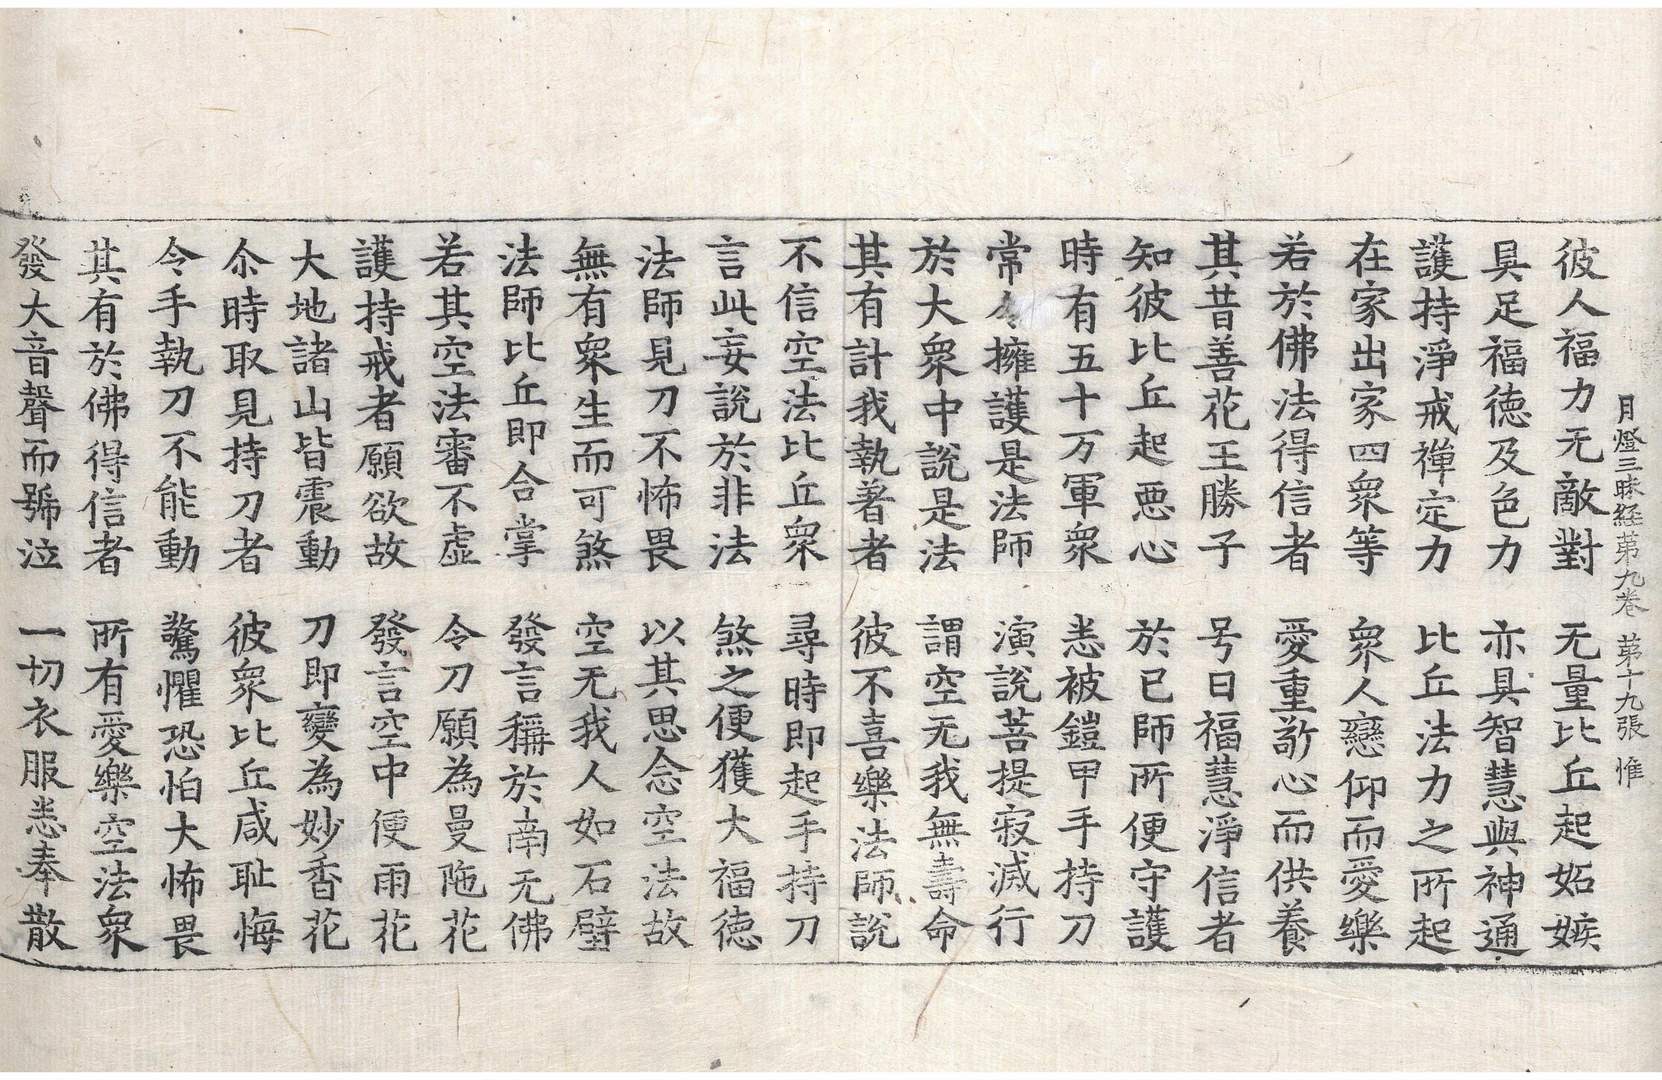 月燈三昧経第九卷 第十九張 惟
彼人福力无敵對 无量比丘起妬嫉
具足福徳及色力 亦具智慧與神通
護持淨戒禅定力 比丘法力之所起
在家出家四衆等 衆人戀仰而愛樂
若於佛法得信者 愛重敬心而供養
其昔善花王勝子 号曰福慧淨信者
知彼比丘起悪心 於已師所便守護
時有五十万軍衆 悉被鎧甲手持刀
常令擁護是法師 演說菩提寂滅行
於大衆中說是法 謂空无我無壽命
其有計我執著者 彼不喜樂法師說
不信空法比丘衆 尋時即起手持刀
言此妄說於非法 煞之便獲大福徳
法師見刀不怖畏 以其思念空法故
無有衆生而可煞 空无我人如石壁
法師比丘即合掌 發言稱於南无佛
若其空法審不虛 令刀願為曼陁花
護持戒者願欲故 發言空中便雨花
大地諸山皆震動 刀即變為妙香花
尒時取見持刀者 彼衆比丘咸耻悔
令手執刀不能動 驚懼恐怕大怖畏
其有於佛得信者 所有愛樂空法衆
發大音聲而號泣 一切衣服悉奉散